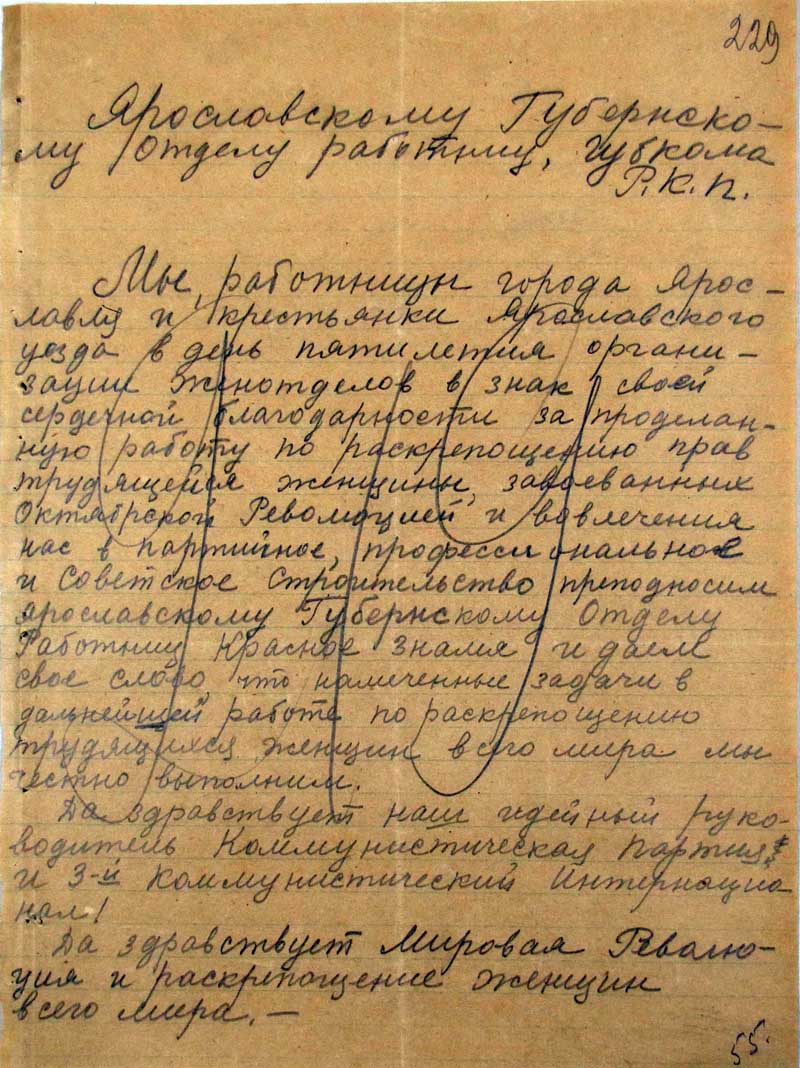 229
Ярославскому Губернско-
му Отделу работниц, Губкома
Р.К.П.
Мы, работницы города Ярос-
лавля и крестьянки Ярославского
уезда в день пятилетия органи-
зации женотделов в знак своей
сердечной благодарности за проделан-
ную работу по раскрепощению прав
трудящейся женщины, завоеванных
Октябрской Революцией и вовлечения
нас в партийное, профессиональное
и Советское строительство преподносим
Ярославскому Губернскому Отделу
Работниц Красное Знамя и даем
свое слово, что намеченные задачи в
дальнейшей работе по раскрепощению
трудящихся женщин всего мира мы
честно выполним.
Да здравствует наш идейный руко-
водитель Коммунистическая Партия
и 3-й Коммунистический Интернацио-
нал!
Да здравствует Мировая Револю-
ция и раскрепощение женщин
всего мира. —
55.